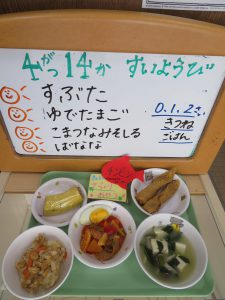 4がつ14か すいようび
すぶた
ゆでたまご
こまつなみそしる
ばなな
0.1.2さい
きつね
ごはん